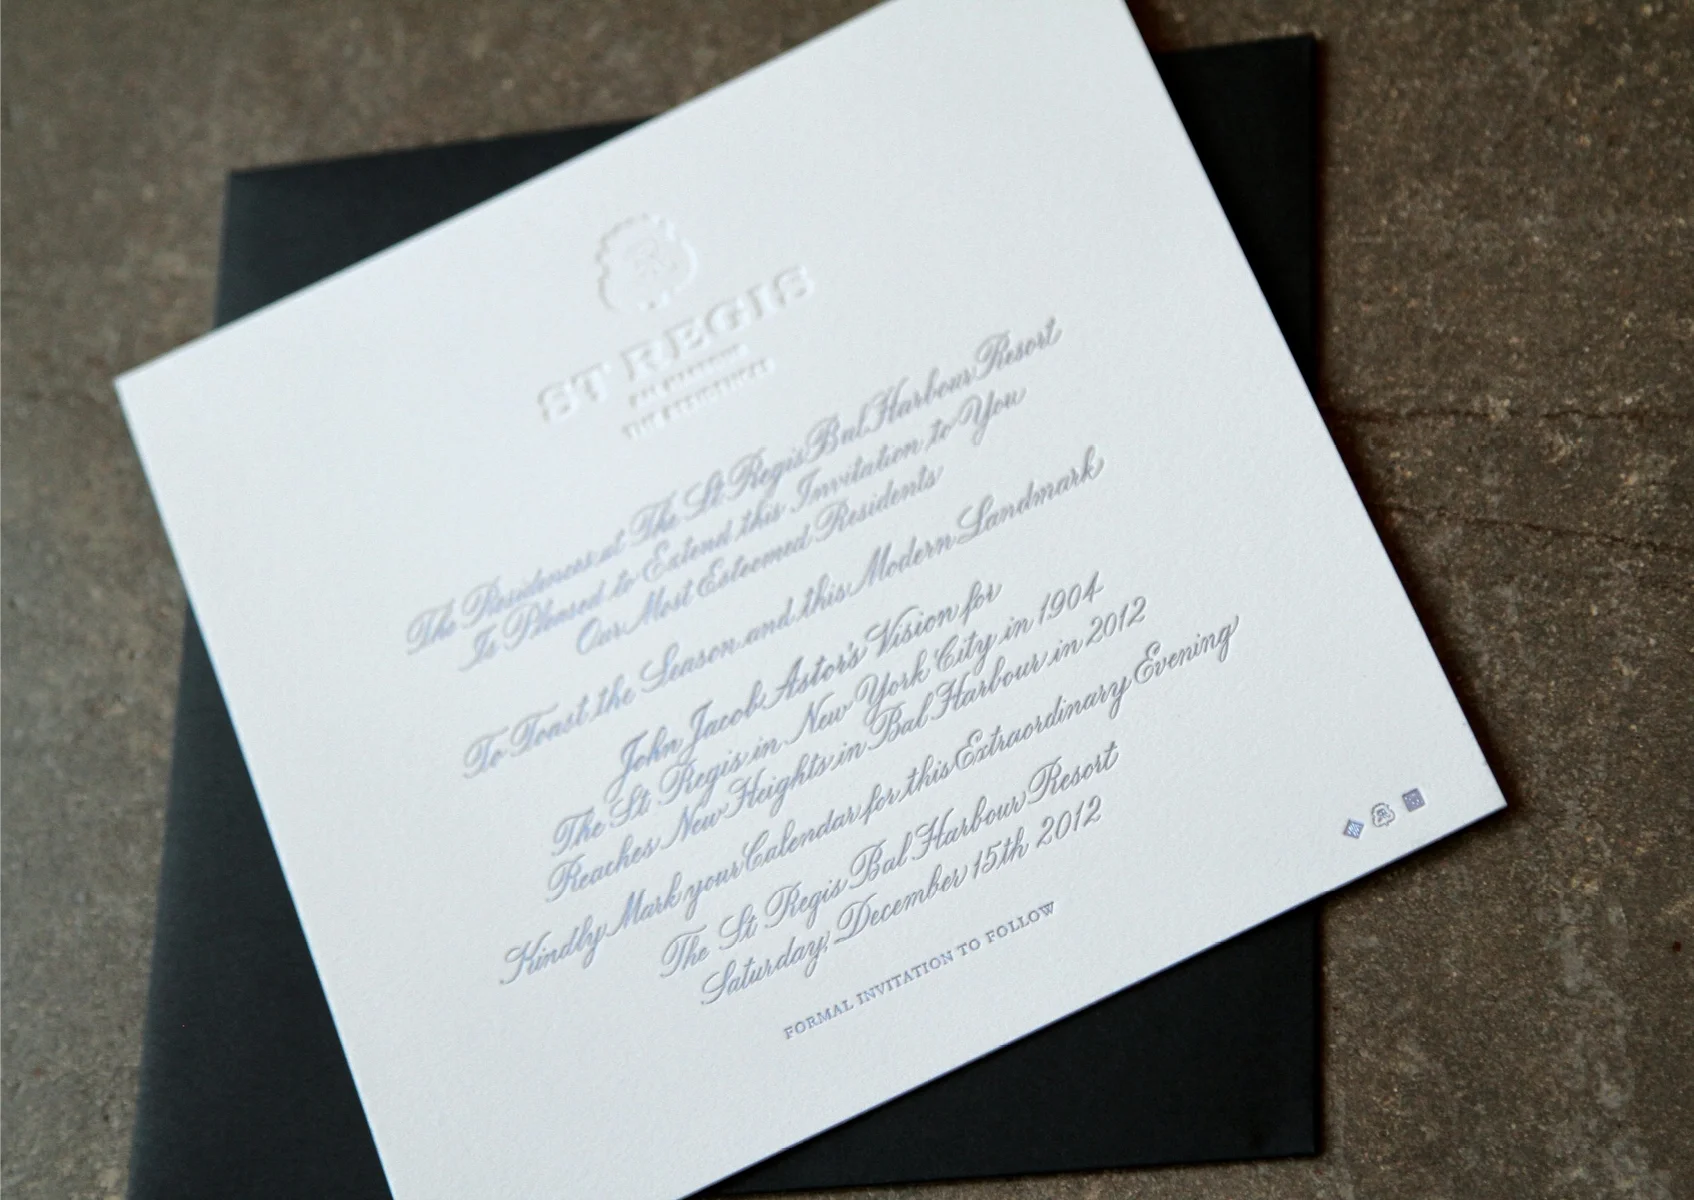 ST REGIS
BAL HARBOUR
THE RESIDENCES
The Residences at The St Regis Bal Harbour Resort
Is Pleased to Extend this Invitation to You
Our Most Esteemed Residents
To Toast the Season and this Modern Landmark
John Jacob Astor's Vision for
The St Regis in New York City in 1904
Reaches New Heights in Bal Harbour in 2012
Kindly Mark your Calendar for this Extraordinary Evening
The St Regis Bal Harbour Resort
Saturday, December 15th 2012
FORMAL INVITATION TO FOLLOW